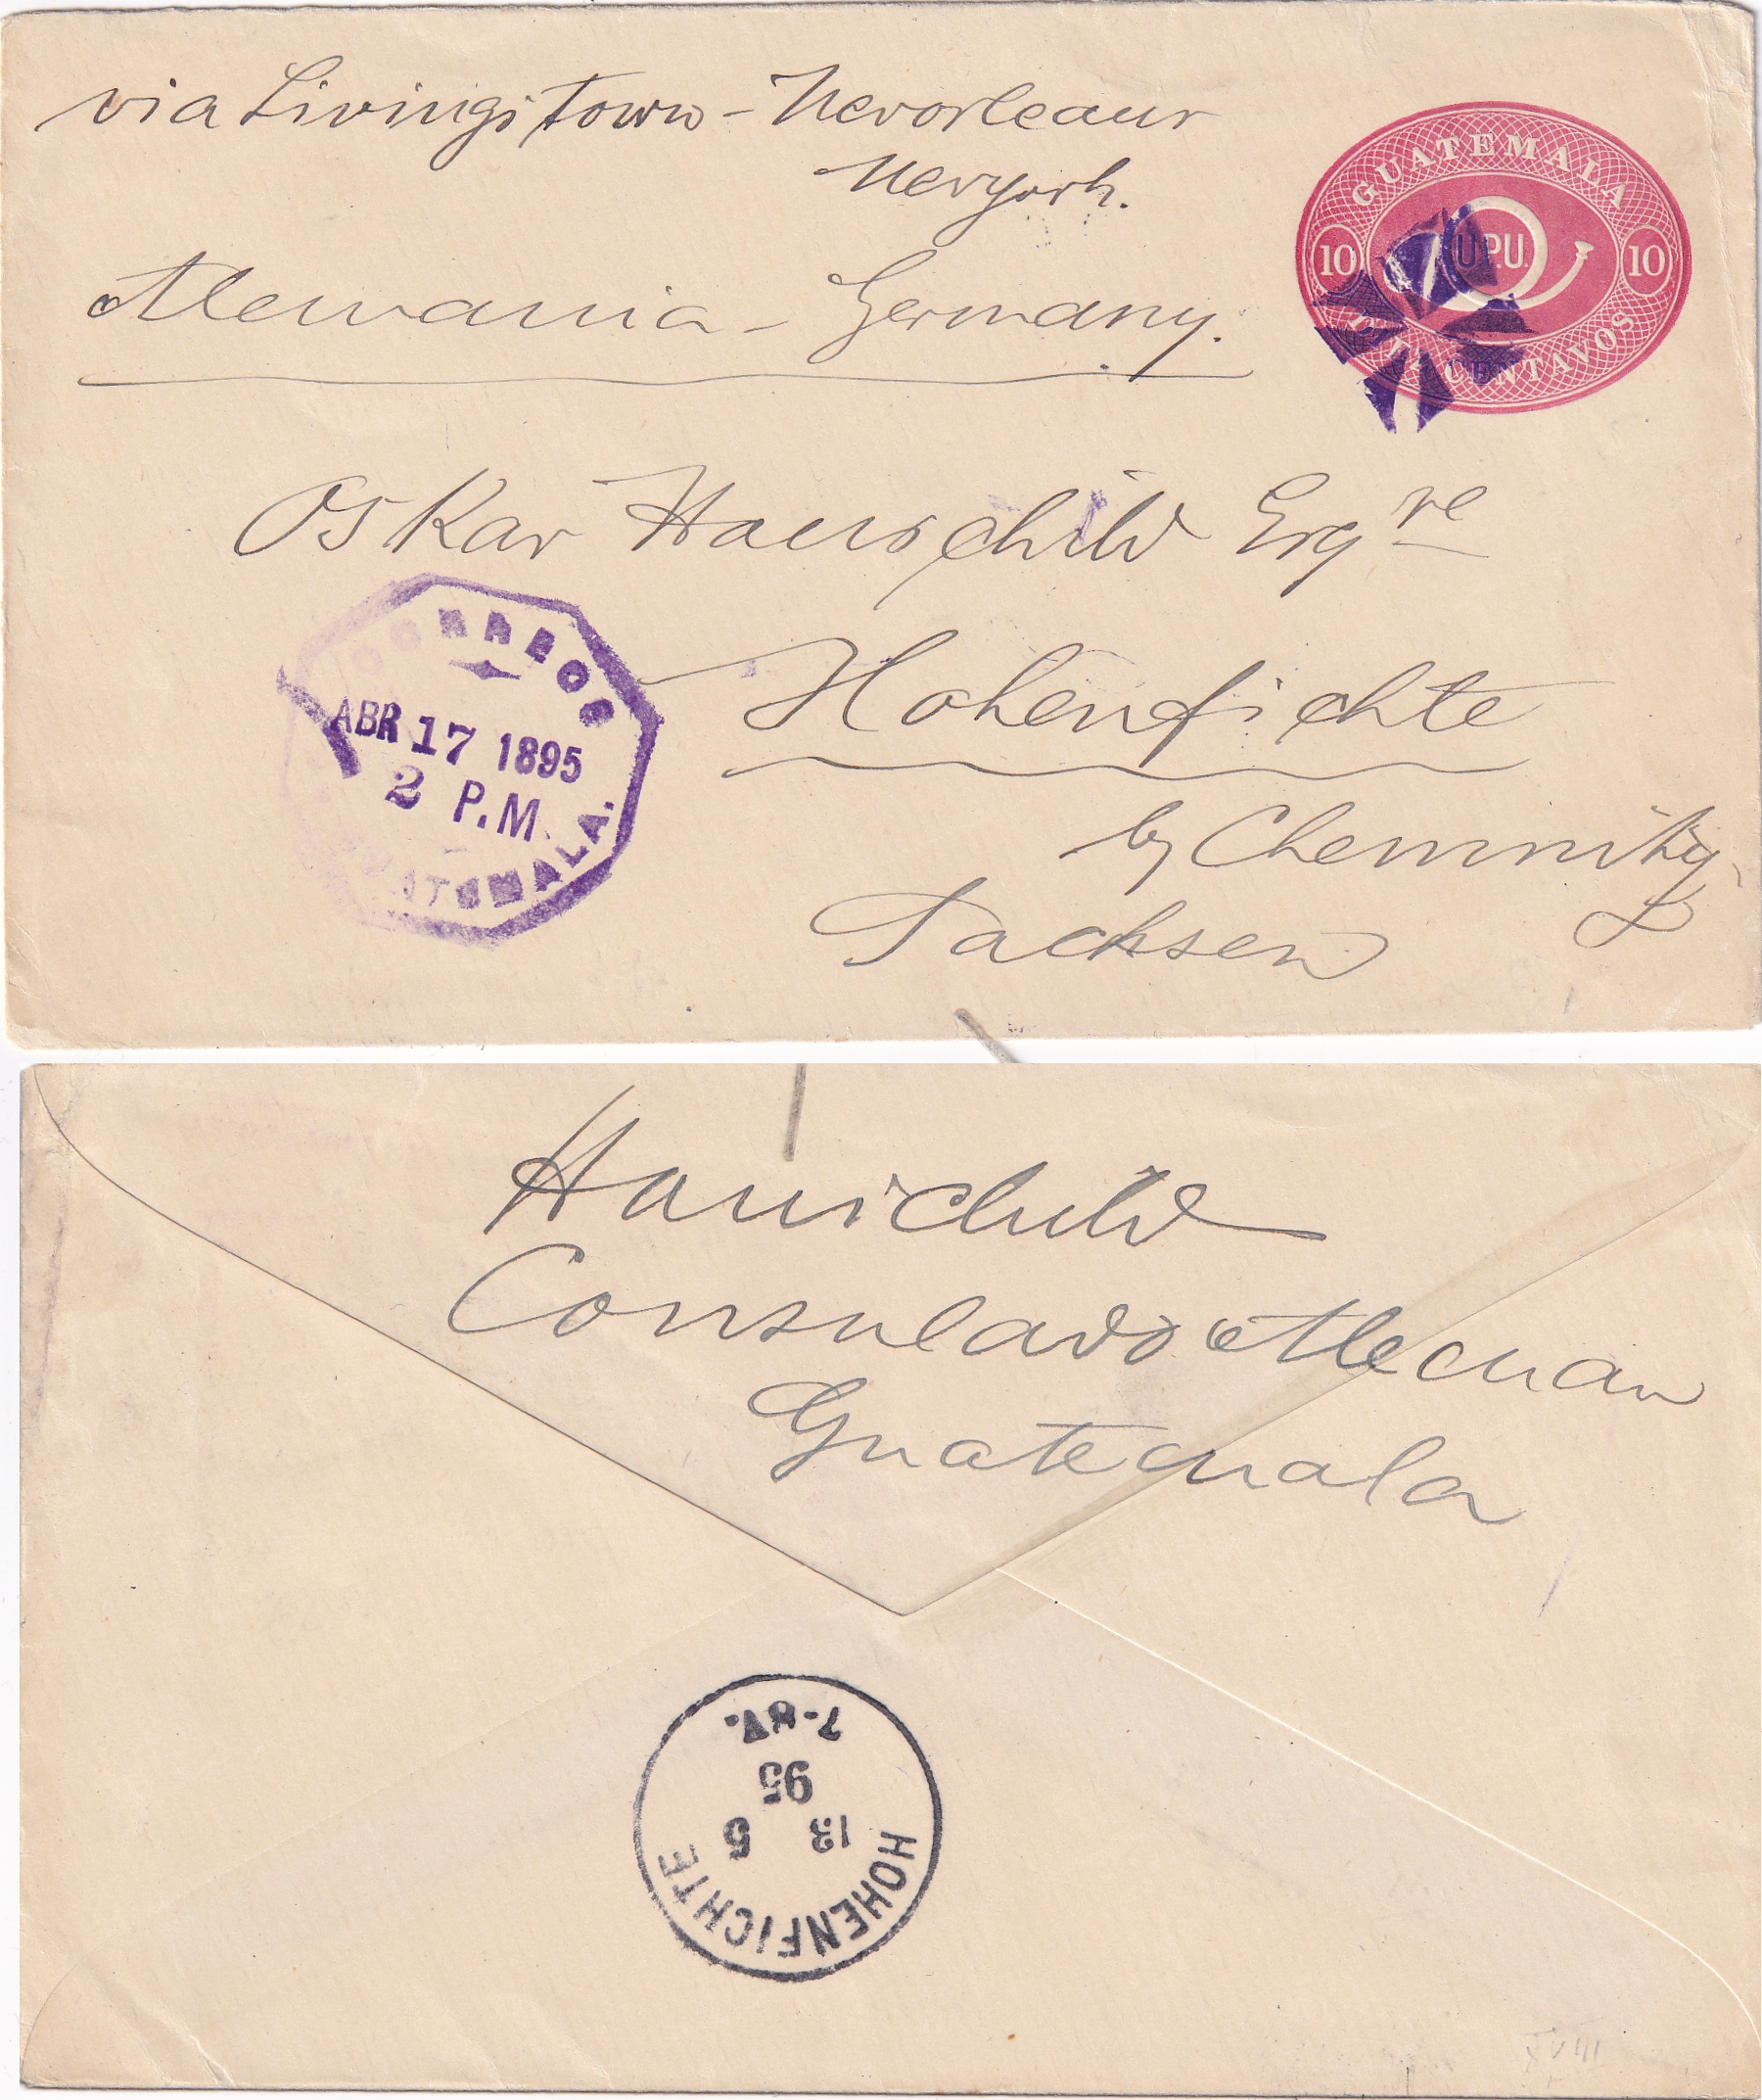 via Livingstown - Neworleans
Newyork.
Alemania - Germany.
GUATEMALA
10 U.P.U. 10
CENTAVOS
Oskar Hauschild Esqre
Hohenfichte
by Chemnitz
Sachsen
CORREOS
ABR 17 1895
2 P.M.
GUATEMALA.
Hauschild
Consulado Aleman
Guatemala
HOHENFICHTE
13 5
95
7-8V.
XVIII